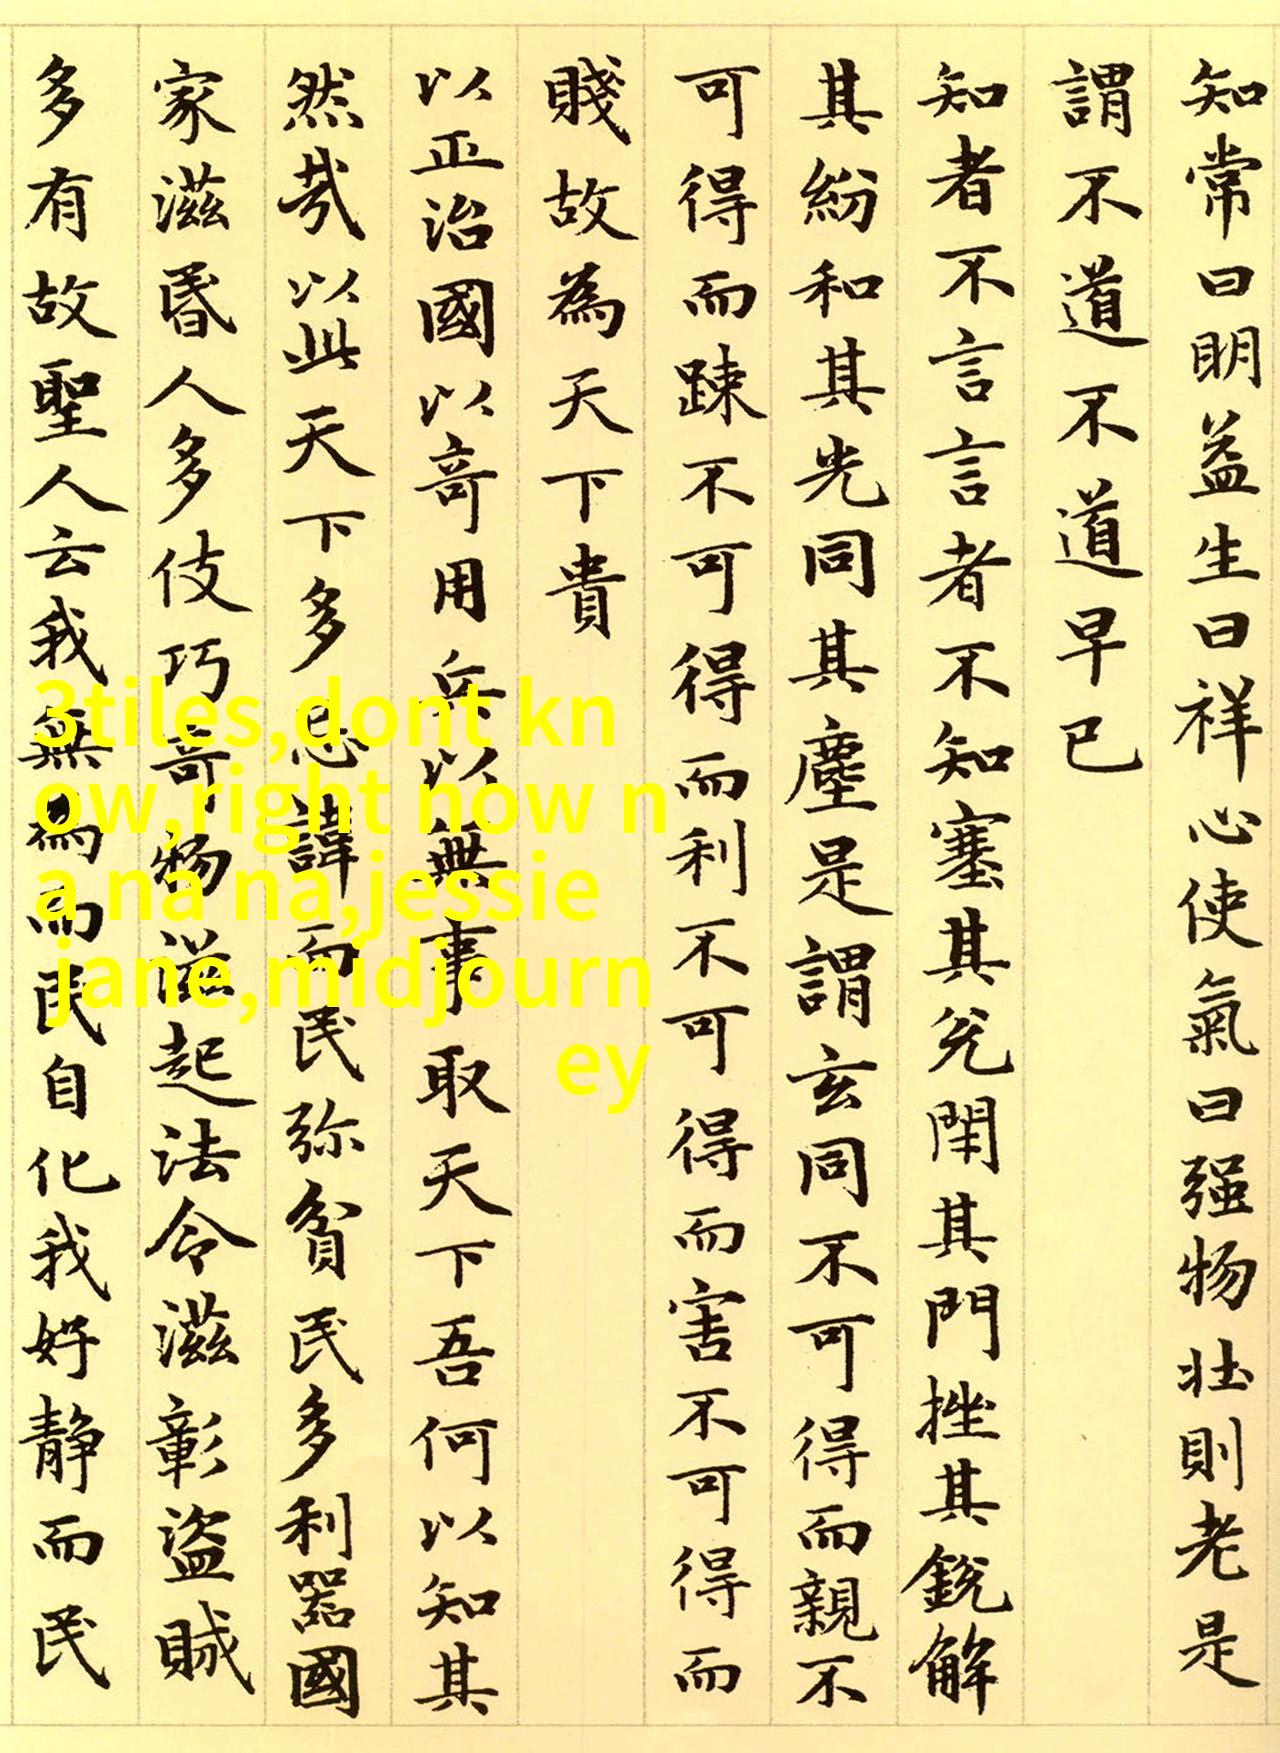 知常曰明益生曰祥心使氣曰强物壯則老是
謂不道不道早已
知者不言言者不知塞其兑閉其門挫其銳解
其紛和其光同其塵是謂玄同不可得而親不
可得而踈不可得而利不可得而害不可得而
賤故為天下貴
以正治國以奇用兵以無事取天下吾何以知其
然哉以此天下多忌諱而民弥貧民多利器國
家滋昏人多伎巧奇物滋起法令滋彰盜賊
多有故聖人云我無為而民自化我好静而民
3tiles,dont kn
ow,right now n
a na na,jessie
jane,midjourn
ey